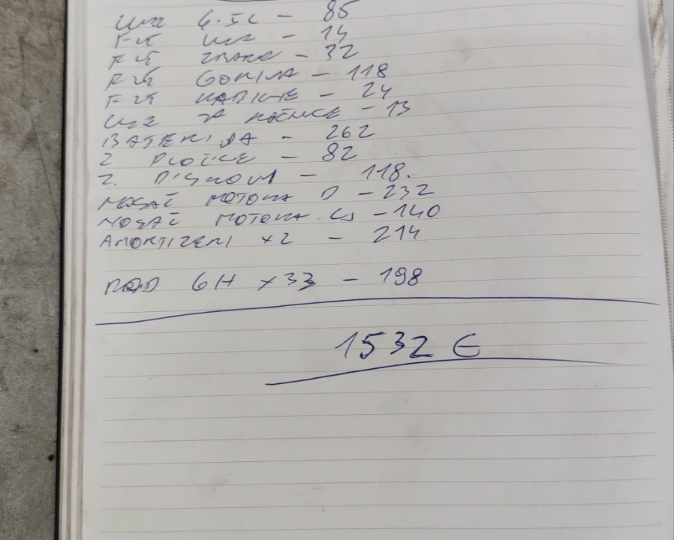 ULJE 6.5L - 85
FILT ULJE - 14
FILT ZRAKE - 32
FILT GORIVA - 118
FILT KABINE - 24
ULJE ZA KOČNICE - 13
BATERIJA - 262
Z PLOČICE - 82
Z. DISKOVI - 118.
NOSAČ MOTORA D - 232
NOSAČ MOTORA - 140
AMORTIZERI x2 - 214
RAD 6H x33 - 198
1532 €